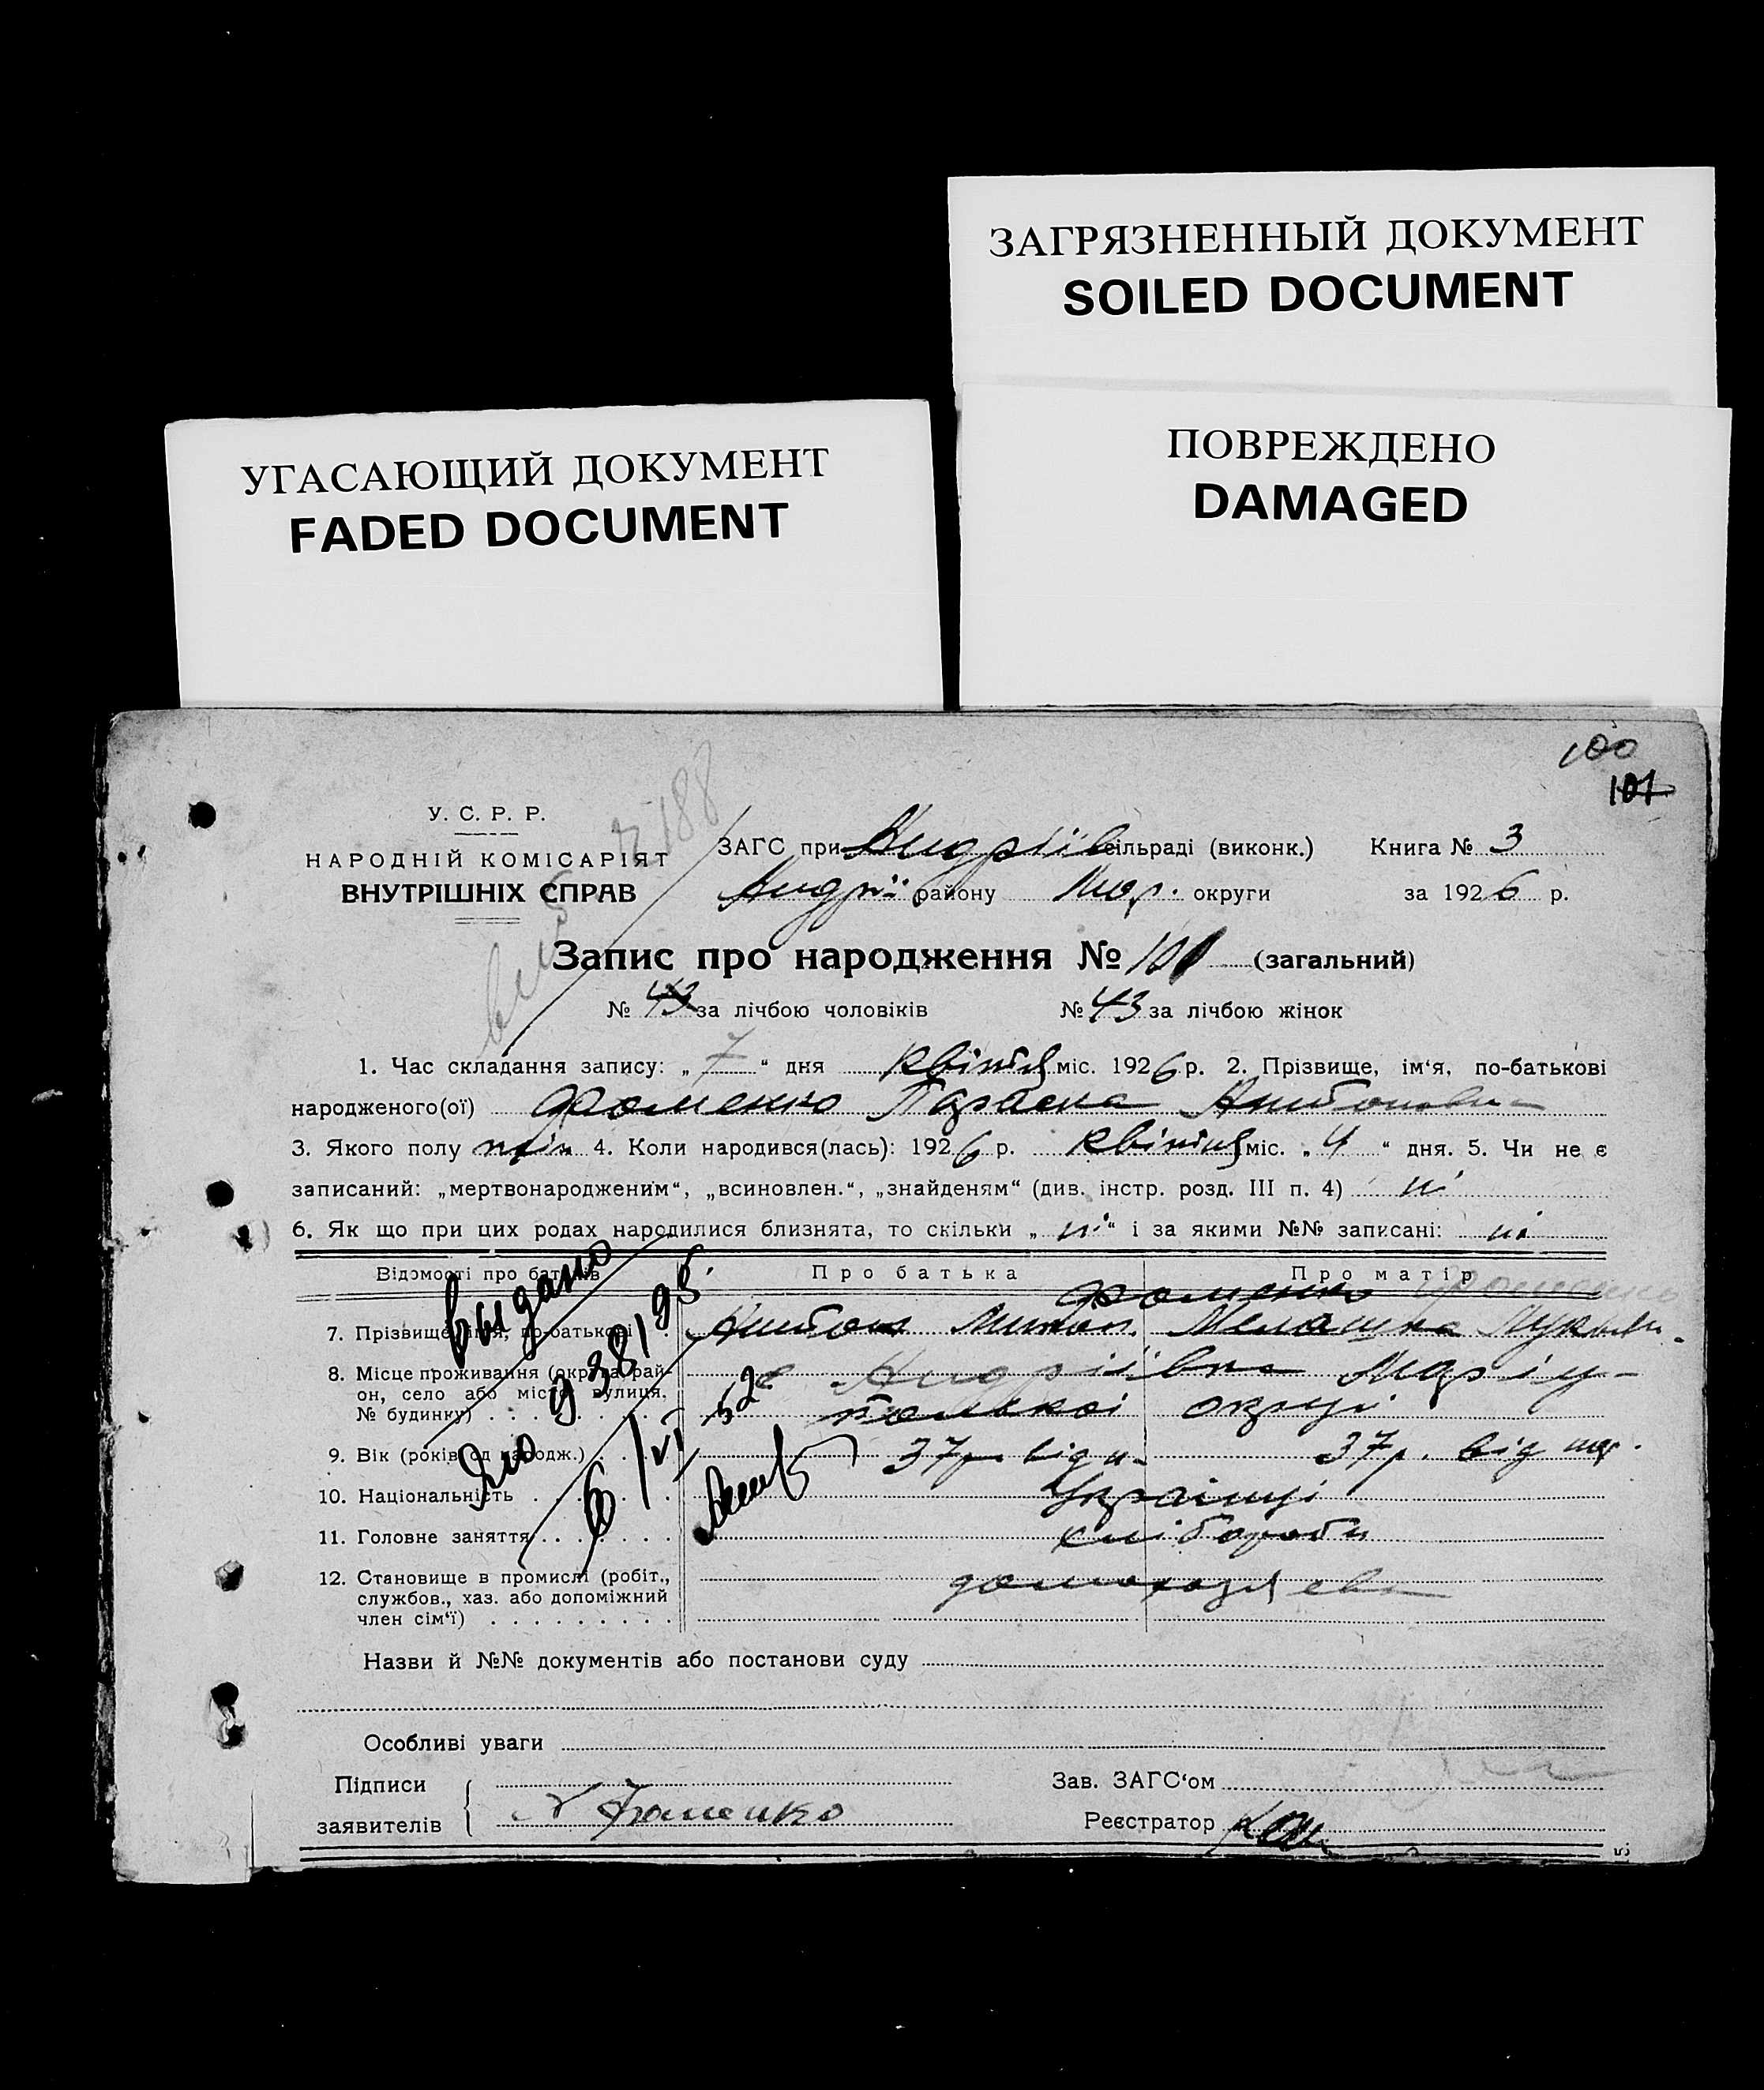 ЗАГРЯЗНЕННЫЙ ДОКУМЕНТ
SOILED DOCUMENT
УГАСАЮЩИЙ ДОКУМЕНТ
FADED DOCUMENT
ПОВРЕЖДЕНО
DAMAGED
100
101
У. С. Р. Р.
НАРОДНІЙ КОМІСАРІЯТ
ВНУТРІШНІХ СПРАВ
ЗАГС при Андріїв сільраді (виконк.) Книга № 3
Андрії району Мар. округи за 1926 р.
Запис про народження № (загальний)
№ 43 за лічбою чоловіків № 43 за лічбою жінок
1. Час складання запису: „7“ дня квітня міс. 1926 р. 2. Прізвище, ім‘я, по-батькові
народженого(ої) Фоменко Параска Антоновн
3. Якого полу жін 4. Коли народився(лась): 1926 р. квітня міс. „4“ дня. 5. Чи не є
записаний: „мертвонародженим“, „всиновлен.“, „знайденям“ (див. інстр. розд. III п. 4) ні
6. Як що при цих родах народилися близнята, то скільки „ні“ і за якими №№ записані: ні
Відомості про батьків Про батька Про матір
Фоменко
7. Прізвище, ім‘я, по-батькові Антон Меланка
8. Місце проживання (округа, рай-
он, село або місто, вулиця,
№ будинку)
с Андріївка Маріу-
польскої округи
9. Вік (років од народж.) 37р від н 37р. від нар.
10. Національність Українці
11. Головне заняття хлібороби
12. Становище в промислі (робіт.,
службов., хаз. або допоміжний
член сім‘ї)
Выдано
Назви й №№ документів або постанови суду
Особливі уваги
Підписи
заявителів
Фоменко
Зав. ЗАГС‘ом
Реєстратор